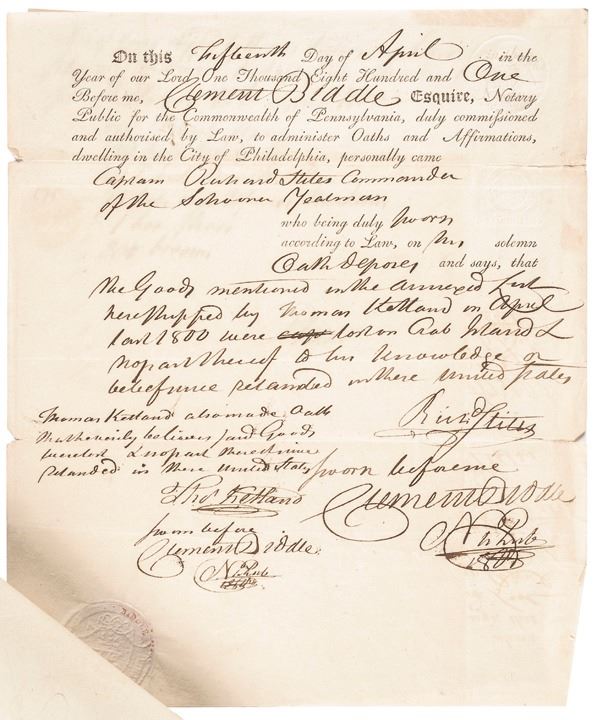 On this fifteenth Day of April in the
Year of our Lord One Thousand Eight Hundred and One
Before me, Clement Biddle Esquire, Notary
Public for the Commonwealth of Pennsylvania, duly commissioned
and authorised, by Law, to administer Oaths and Affirmations,
dwelling in the City of Philadelphia, personally came
Captain Richard Stites Commander
of the Schooner Yeatman
who being duly sworn
according to Law, on his solemn
Oath deposes and says, that
the Goods mentioned in the annexed List
here shipped by Thomas Ketland in April
last 1800 were lost on Crab Island &
no part thereof to his knowledge or
belief since relanded in these United States
Thomas Ketland also made Oath
that he verily believes said Goods
were lost & no part thereof since
relanded in these United States
Richd Stites
Sworn before me
Thos Ketland
Clement Biddle
sworn before
Clement Biddle